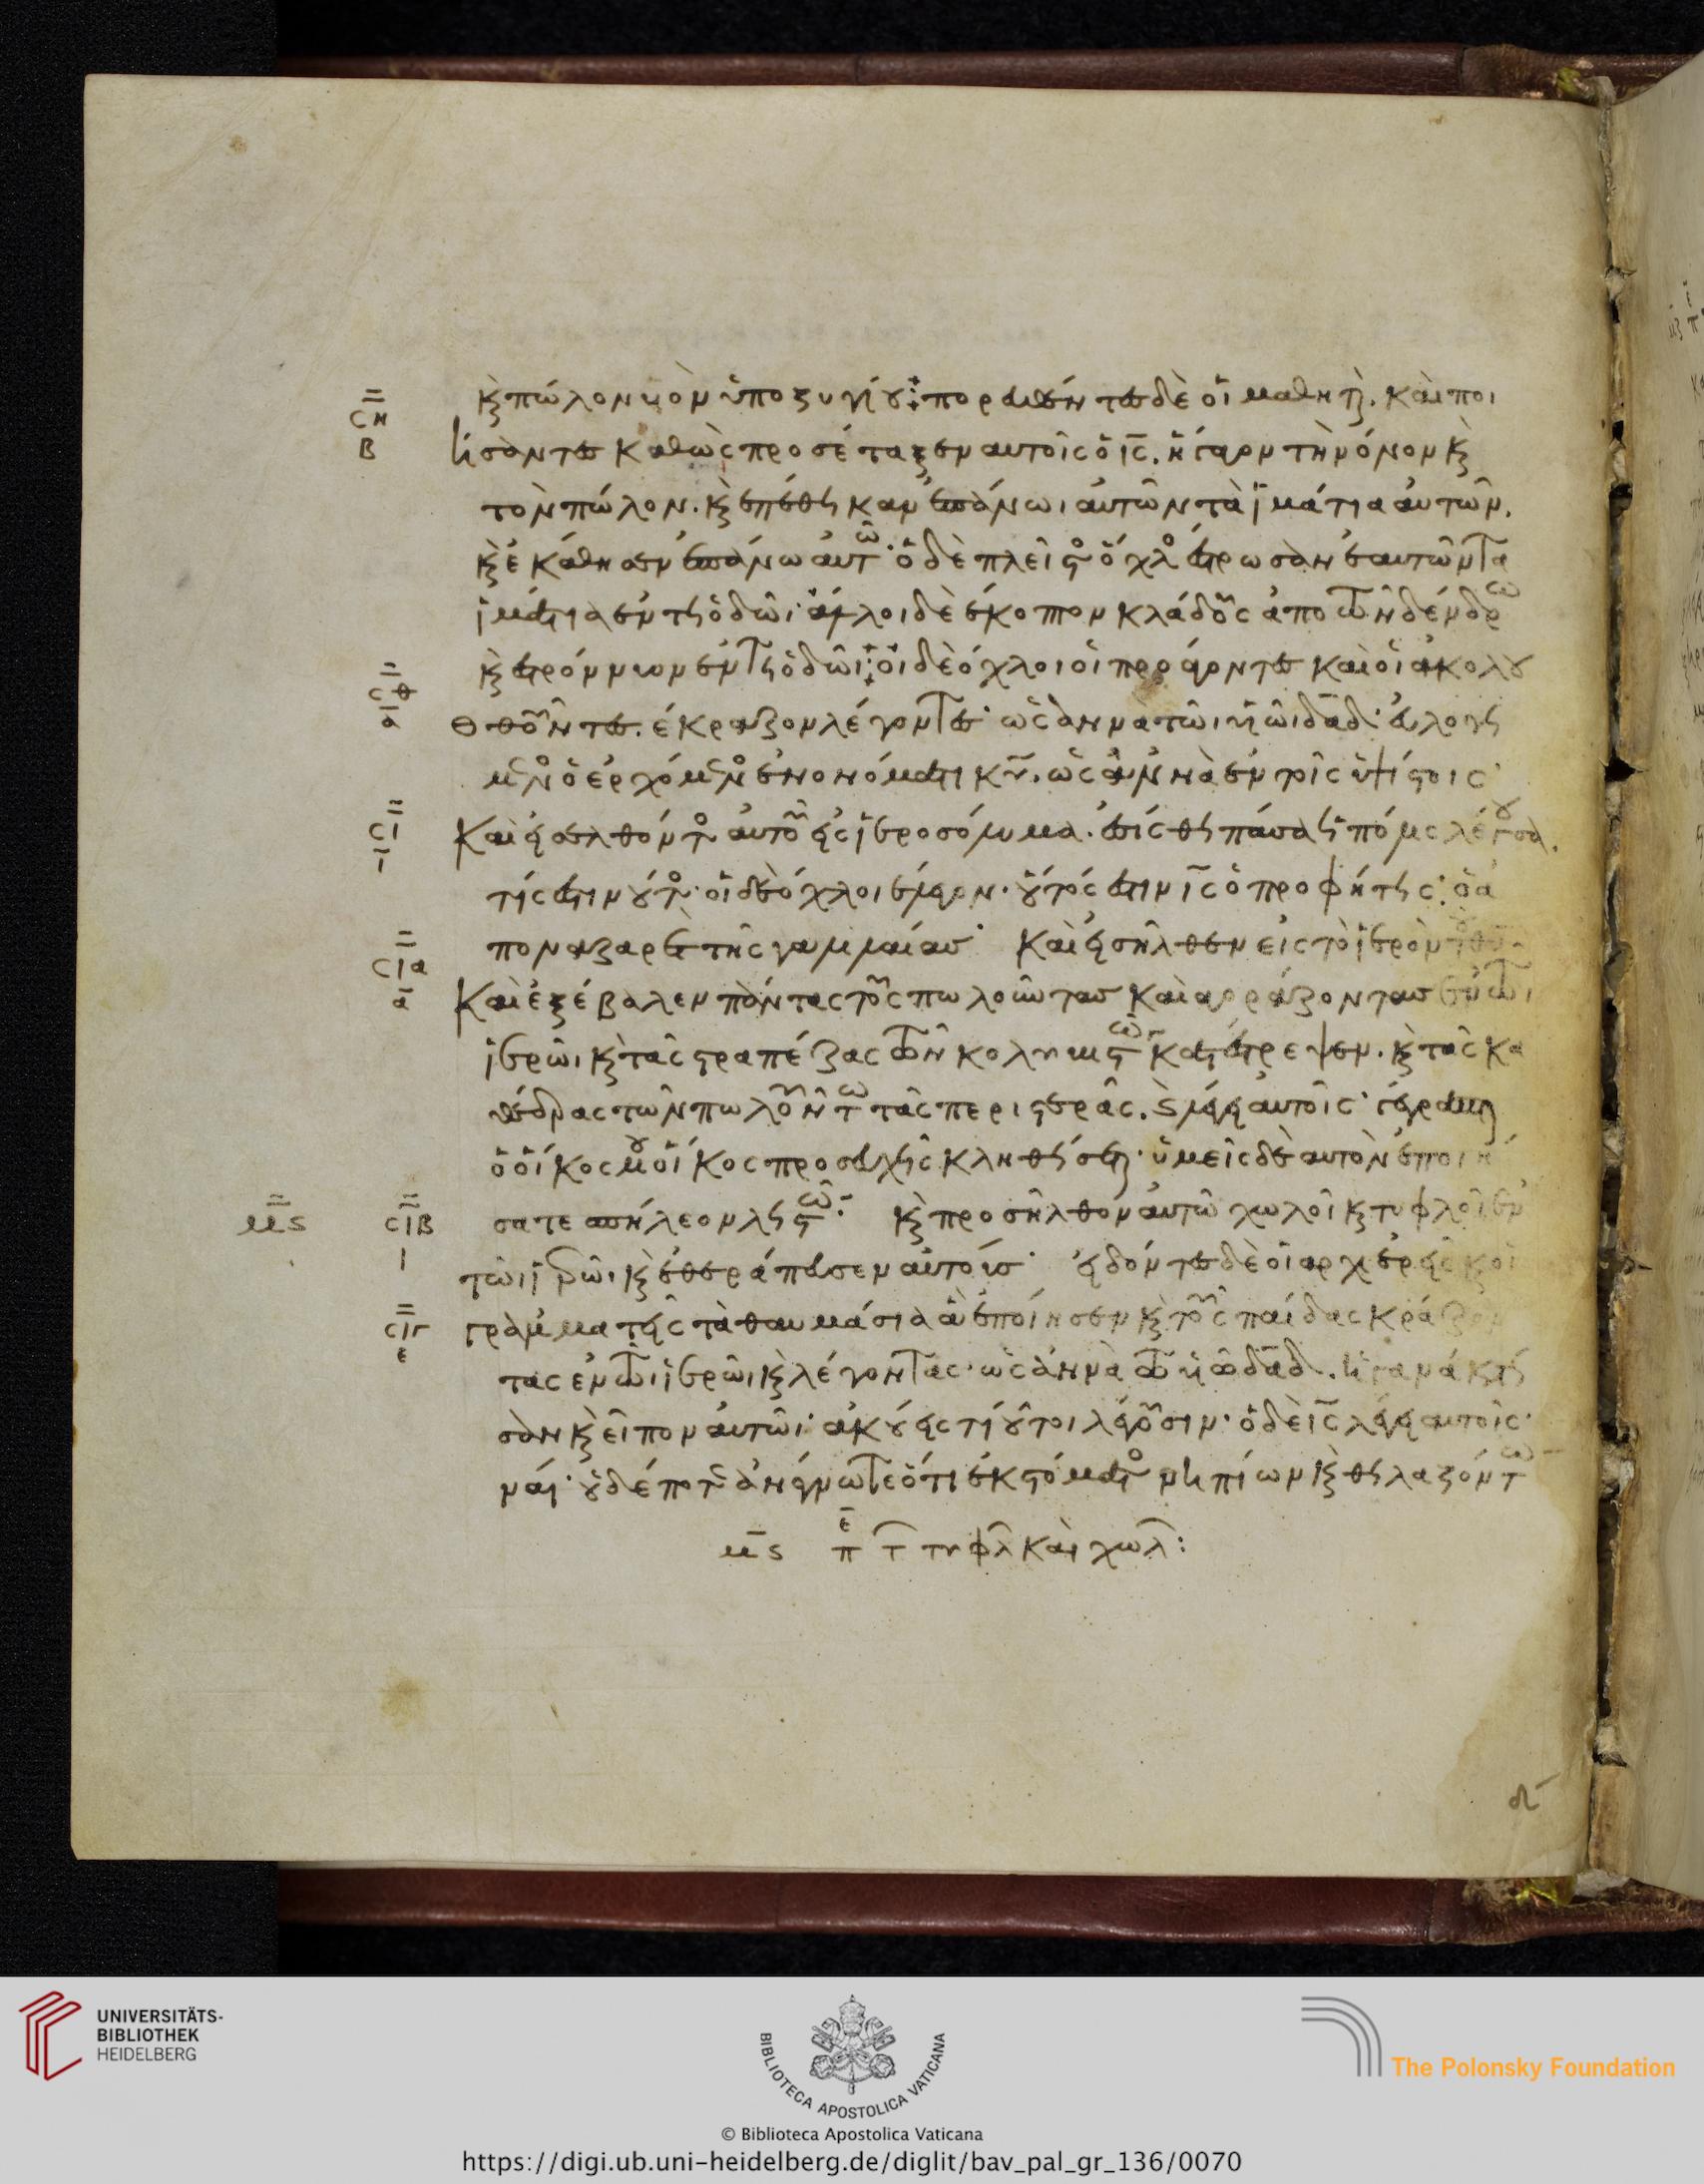 σ̅η̅ β̅ κ(αὶ) πῶλον υἱὸν ὑποζυγίου: πορευθέντες δὲ οἱ μαθηταὶ. καὶ ποι
ήσαντες καθὼς προσέταξεν αυτοῖς ὁ ι̅ς̅. ἤγαγον τὴν όνον κ(αὶ)
τὸν πῶλον. κ(αὶ) ἐπέθηκαν ἐπάνωι αὐτῶν τὰ ϊμάτια αὐτῶν.
κ(αὶ) ἐκάθησεν ἐπάνω αὐτῶν· ὁ δὲ πλεῖστος όχλος έστρωσαν ἑαυτῶν τα
ϊμάτια ἐν τῆ ὁδῶι· άλλοι δὲ έκοπτον κλάδους ἀπο τῶν δένδρων
κ(αὶ) εστρόννυον ἐν τῆ ὁδῶι: οἱ δὲ όχλοι οἱ προάγοντες καὶ οἱ ἀκολου
σ̅θ̅ α̅ θοῦντες. έκραζον λέγοντες· ὡσαννὰ τῶι υἱῶι δ̅α̅δ̅· εὐλογη
μένος ὁ ἐρχόμενος ἐν ονόματι κ̅υ̅. ὡσαννὰ ἐν τοῖς ὑψίστοις·
σ̅ι̅ ι̅ Καὶ εἰσελθόντος αὐτοῦ εἰς ϊεροσόλυμα. ἐσίσθη πάσα ἡ πόλις λέγουσα.
τίς ἐστιν οὗτος· οἱ δὲ όχλοι έλεγον· οὗτός ἐστιν ι̅ς̅ ὁ προφήτης· ὁ ἀ
πο ναζαρὲτ τῆς γαλιλαίας· Καὶ εἰσῆλθεν εἰς τὸ ϊερὸν τοῦ θ̅υ̅.
σ̅ι̅α̅ α̅ Καὶ ἐξέβαλεν πάντας τοὺς πωλοῦντας καὶ αγοράζοντας ἐν τῶι
ϊερῶι κ(αὶ) τὰς τραπέζας τῶν κολυβιστῶν κατέστρεψεν. κ(αὶ) τὰς κα
θέδρας τῶν πωλοῦντων τὰς περιστερὰς. κ(αὶ) λέγει αὐτοῖς· γέγραπται
ὁ οἶκος μου οἶκος προσευχῆς κληθήσεται· ὑμεῖς δὲ αυτὸν ἐποιή
μ̅ς̅ σ̅ι̅β̅ ι σατε σπήλεον ληστῶν: κ(αὶ) προσῆλθον αὐτῶ χωλοὶ κ(αὶ) τυφλοὶ ἐν
τῶι ϊερῶι κ(αὶ) ἐθεράπευσεν αὐτούς· ἰδόντες δὲ οἱ αρχιερεῖς κ(αὶ) οἱ
σ̅ι̅γ̅ ε γραμματεῖς τὰ θαυμάσια ἃ ἐποίησεν κ(αὶ) τοὺς παίδας κράζον
τας ἐν τῶι ϊερῶι κ(αὶ) λέγοντας· ὡσαννὰ τῶ υἱῶ δ̅α̅δ̅. ἠγανάκτη
σαν κ(αὶ) εἶπον αὐτῶι· ἀκούεις τί οὗτοι λέγουσιν· ὁ δὲ ι̅ς̅ λέγει αυτοῖς·
ναί· οὐδέποτε ἀνέγνωτε ὅτι ἐκ στόματος νηπίων κ(αὶ) θηλαζόντων
μ̅ς̅ π̅ε̅ τ τυφλ καὶ χωλ:
UNIVERSITÄTS-
BIBLIOTHEK
HEIDELBERG
BIBLIOTECA APOSTOLICA VATICANA
The Polonsky Foundation
© Biblioteca Apostolica Vaticana
https://digi.ub.uni-heidelberg.de/diglit/bav_pal_gr_136/0070